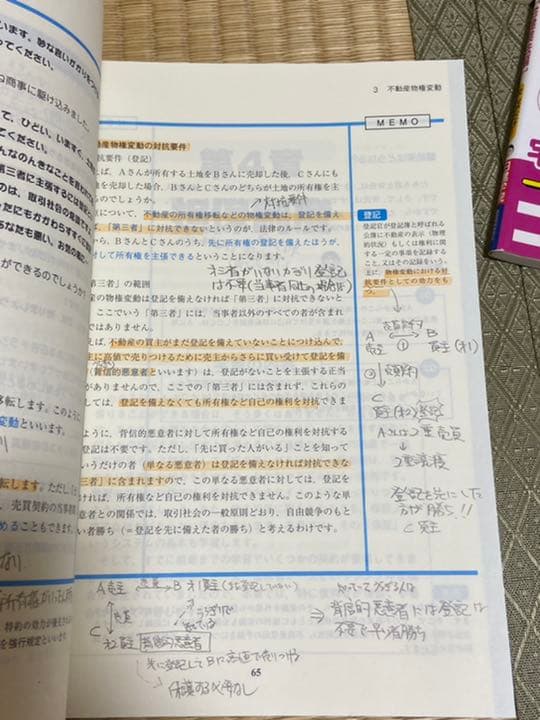 います。妙な言いがかりをつ
ってください。
ね商事に駆け込みました。
て、ひどい。いますぐ、土地
てください。
んなのんきなことを言われても
第三者に主張するには登記
のは、取引社会の常識です
たにもかかわらずすぐに登
うなたも悪い。お気の毒だ
ができるのでしょうか?
転します。このように
変動といいます。
転します。ただし、
売買契約の当事者
めることもできます。
特約の効力が備えた
を強行規定といいます。
3 不動産物権変動
MEMO
動産物権変動の対抗要件
抗要件(登記)
ば、Aさんが所有する土地をBさんに売却した後、Cさんにも
を売却した場合、BさんとCさんのどちらが土地の所有権を主
のでしょうか。
対抗要件
について、不動産の所有権移転などの物権変動は、登記を備え
ば、「第三者」に対抗できないというのが、法律のルールです。
から、BさんとCさんのうち、先に所有権の登記を備えたほうが、
対して所有権を主張できるということになります。
第三者がいないかぎり登記
は不要(当事者同士の場合は)
第三者」の範囲
産の物権変動は登記を備えなければ「第三者」に対抗できないと
ここでいう「第三者」には、当事者以外のすべての者が含まれ
ではありません。
えば、不動産の買主がまだ登記を備えていないことにつけ込んで、
主に高値で売りつけるために売主からさらに買い受けて登記を備
(背信的悪意者といいます)は、登記がないことを主張する正当
がありませんので、ここでの「第三者」には含まれず、これらの
しては、登記を備えなくても所有権など自己の権利を対抗できま
ように、背信的悪意者に対して所有権など自己の権利を対抗する
登記は不要です。ただし、「先に買った人がいる」ことを知って
いうだけの者(単なる悪意者)は登記を備えなければ対抗できな
三者」に含まれますので、この単なる悪意者に対しては、登記を
ければ、所有権など自己の権利を対抗できません。このような単
意者との関係では、取引社会の一般原則どおり、自由競争のもと
い者勝ち(=登記を先に備えた者の勝ち)と考えるわけです。
登記
登記官が登記簿と呼ばれる
公簿に不動産の表示(物理
的状況)もしくは権利に関
する一定の事項を記録する
こと、又はその記録をいう。
上に、物権変動における対
抗要件としての効力をも
つ。
A
売主
①
B
買主(オ1)
②
C
買主(オ2)登記
Aは2重売買
↓
2重譲渡
登記を先にした
方が勝ち!!
C 買主
A 売主
B オ1買主(まだ登記していない)
売買
C
オ2買主 背信的悪意者
知っている
先に登記してBに高値で売りつける
→保護する必要なし
⇒背信的悪意者には登記は
不要で早い者勝ち
65